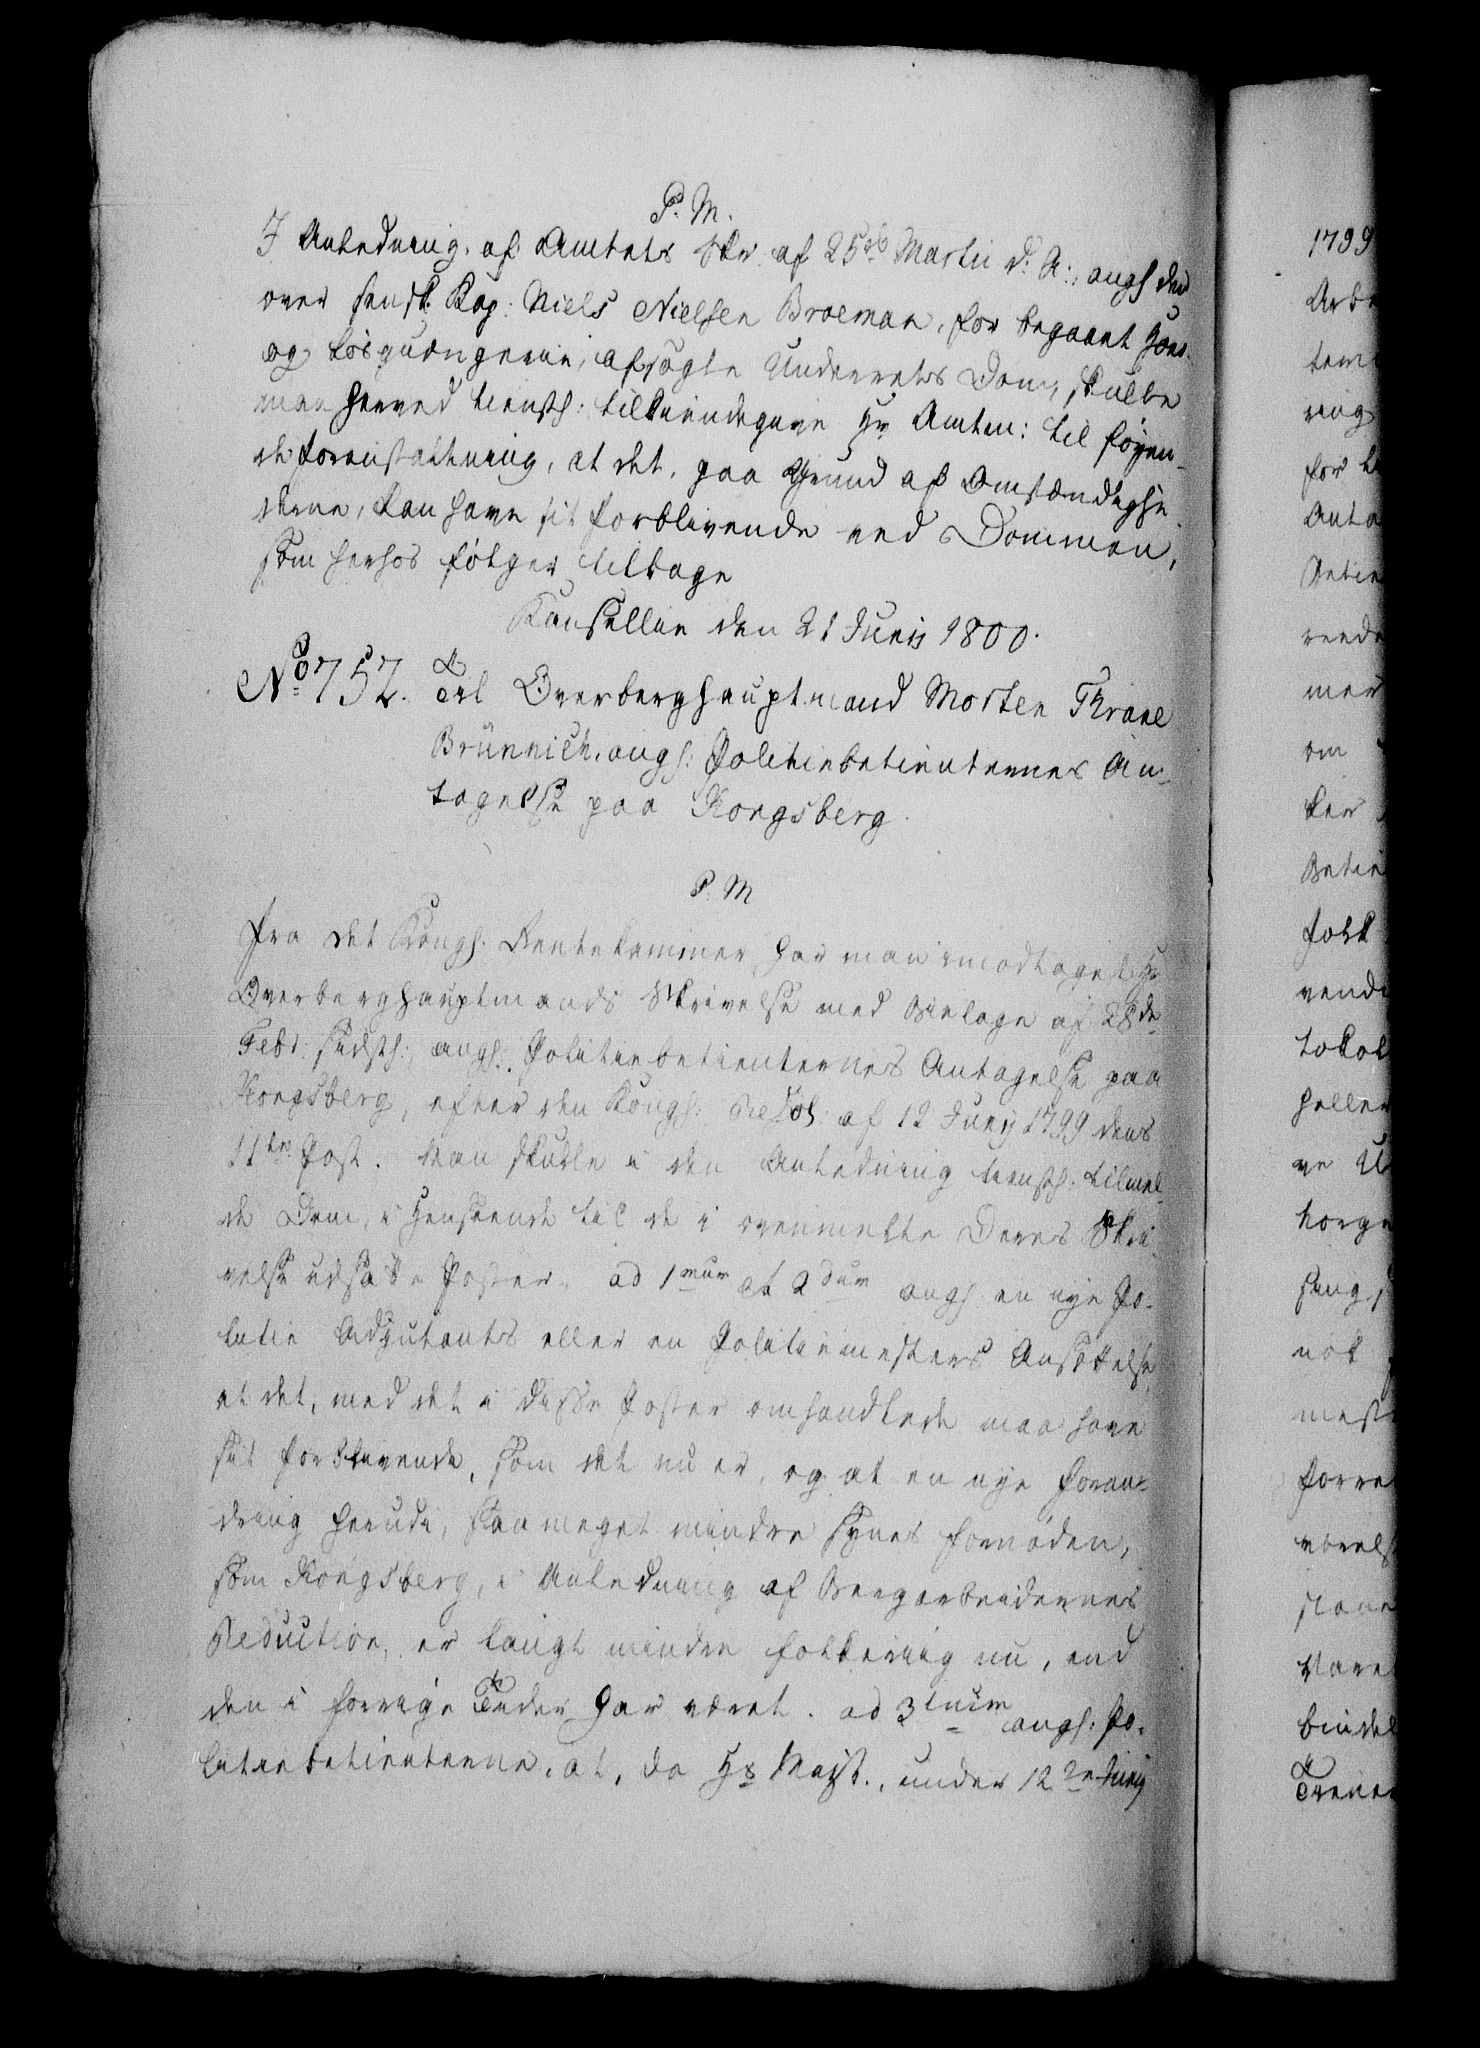 P. M.
I Anledning af Amtets Skr. af 25de Martii d: A:, angl den
over fendsk: Kap: Niels Nielsen Broeman, for begaaet Hoer
og Løsgiængerie, afsagte Underrets Dom, skulle
man herved tienstl: tilkiendegive Hr Amtm: til føyen-
de foranstaltning, at det, paa Grund af Omstændighe
derne, kan have sit forblivende ved Dommen,
som herhos følger tilbage
Kanselliet den 21 Junij 1800.
No 752. Til Overberghauptmand Morten Thrane
Brünnich, angl: Politiebetienternes An-
tagelse paa Kongsberg.
P. M
Fra det Kongl. Rentekammer har man imodtaget Hr
Overberghauptmands Skrivelse med Bielage af 28de
Febr: sidstl:, angl: Politiebetienternes Antagelse paa
Kongsberg, efter den Kongl: Resol: af 12 Junij 1799 dens
11te Post. Man skulle i den Anledning tienstl: tilmel-
de Dem, i Henseende til de i ovenmelte Deres Skri-
velse udsatte Poster, ad 1mum et 2dum angl: en nye Po-
litie Adjutants eller en Politiemesters Ansættelse,
at det, med det i disse Poster omhandlede maa have
sit forblivende, som det nu er, og at en nye foran-
dring herudi, saa meget mindre synes fornøden,
som Kongsberg, i Anledning af Bergarbeidernes
Reduction, er langt mindre folkeriig nu, end
den i forrige Tider har været. ad 3tium angl: Po-
litiebetienterne, at, da Hs Majst., under 12te Junij
1799